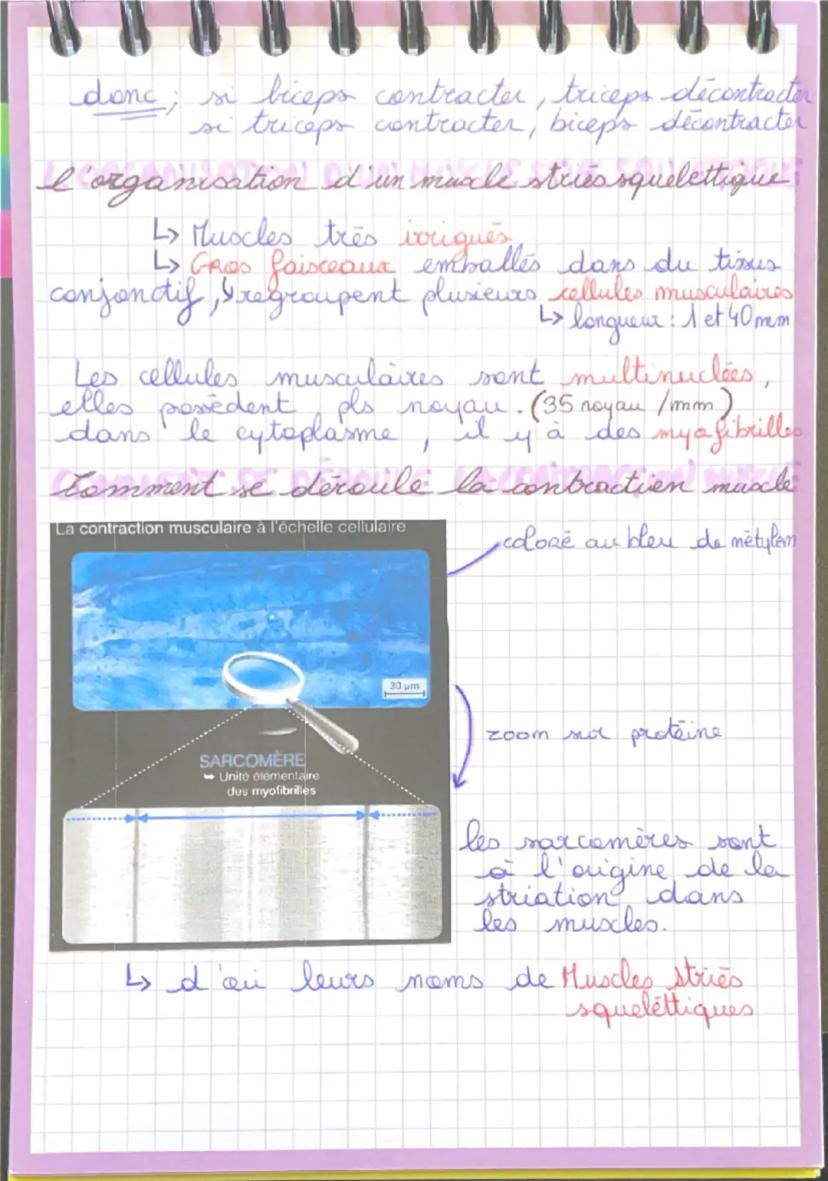 donc ; si biceps contracter, triceps décontracter
si triceps contracter, biceps décontracter
L'organisation d'un muscle striés squelettique
↳ Muscles très irrigués
↳ Gros faisceaux emballés dans du tissus
conjonctif, ↳ regroupent plusieurs cellules musculaires
↳ longueur : 1 et 40 mm
Les cellules musculaires sont multinuclées,
elles possèdent pls noyau. (35 noyau /mm)
dans le cytoplasme, il y'à des myofibrilles
Comment se déroule la contraction muscle
La contraction musculaire à l'échelle cellulaire
coloré au bleu de métylem
30 µm
zoom sur protéine
SARCOMÈRE
➥ Unité élémentaire
des myofibrilles
les sarcomères sont
à l'origine de la
striation dans
les muscles.
↳ d'où leurs noms de Muscles striés
squeléttiques